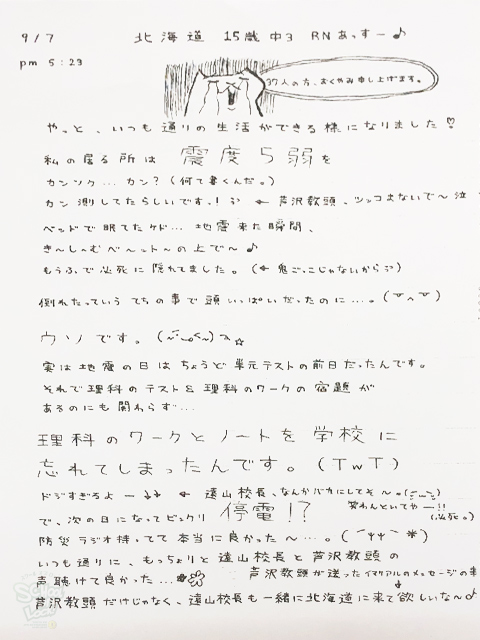 9/7 北海道 15歳 中3 RN あっすー♪
pm 5:23
37人の方、おくやみ申し上げます。
やっと、いつも通りの生活ができる様になりました♡
私の居る所は 震度5弱を
カンソク…カン?(何て書くんだ。)
カン測してたらしいです。! ← 芦沢教頭、ツッコまないで〜泣
ベッドで眠てたケド…地震来た瞬間、
き〜し〜む ベ〜ット〜の上で〜♪
もうふで必死に隠れてました。(← 鬼ごっこじゃないから
倒れたっていう てちの事で頭いっぱいだったのに…。
ウソです。
実は地震の日はちょうど単元テストの前日だったんです。
それで理科のテスト& 理科のワークの宿題が
あるのにも関わらず…
理科のワークとノートを学校に
忘れてしまったんです。(TwT)
ドジすぎるよー ← 遠山校長、なんかバカにしてそ〜。
笑わんといてやー!!
(必死。)
で、次の日になってビックリ 停電!?
防災ラジオ持ってて本当に良かった〜…。
いつも通りに、もっちりと遠山校長と芦沢教頭の
声聴けて良かった…
芦沢教頭が送ったイマリアルのメッセージの事
芦沢教頭だけじゃなく、遠山校長も一緒に北海道に来て欲しいな〜♪